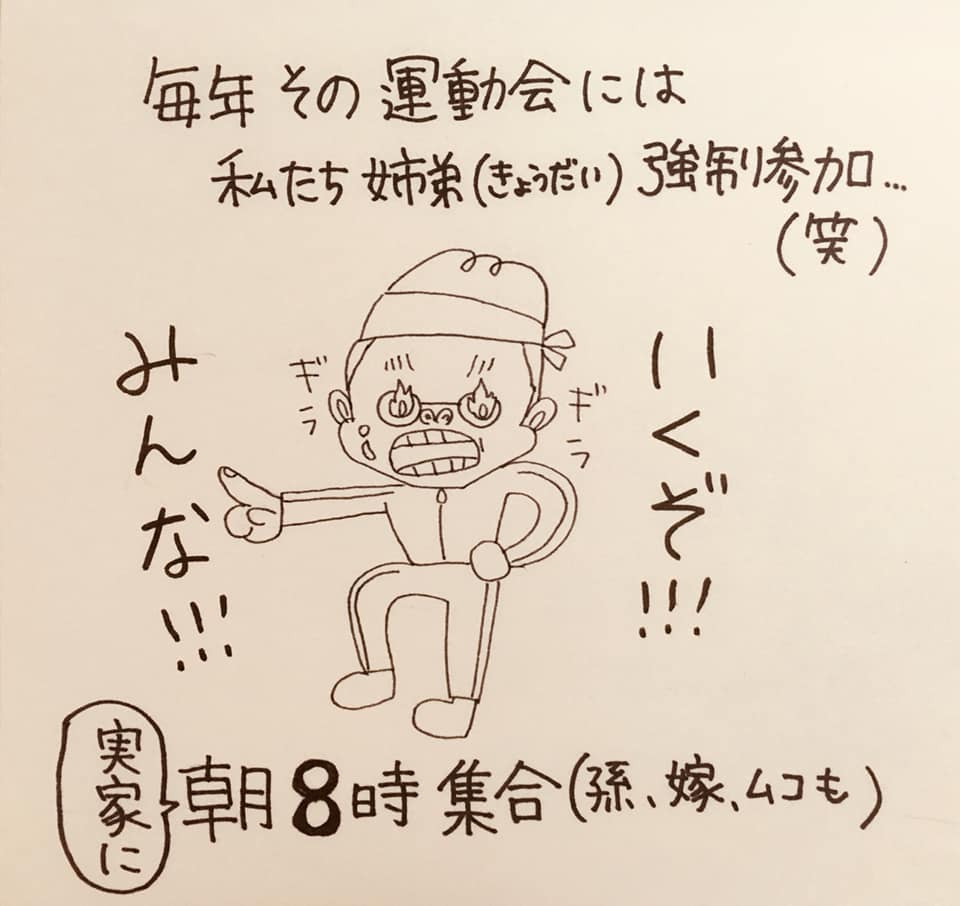 毎年その運動会には
私たち姉弟(きょうだい)強制参加...
(笑)
いくぞ!!!
みんな!!!
ギラ
ギラ
実家に
朝8時集合(孫、嫁、ムコも)